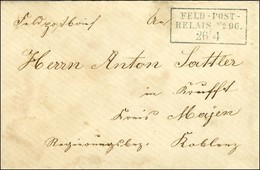 Feldpostbrief An
FELD-POST-
RELAIS Nº 96.
26 4
Herrn Anton Sattler
in Krufft
Kreis Mayen
Regierungsbez. Koblenz